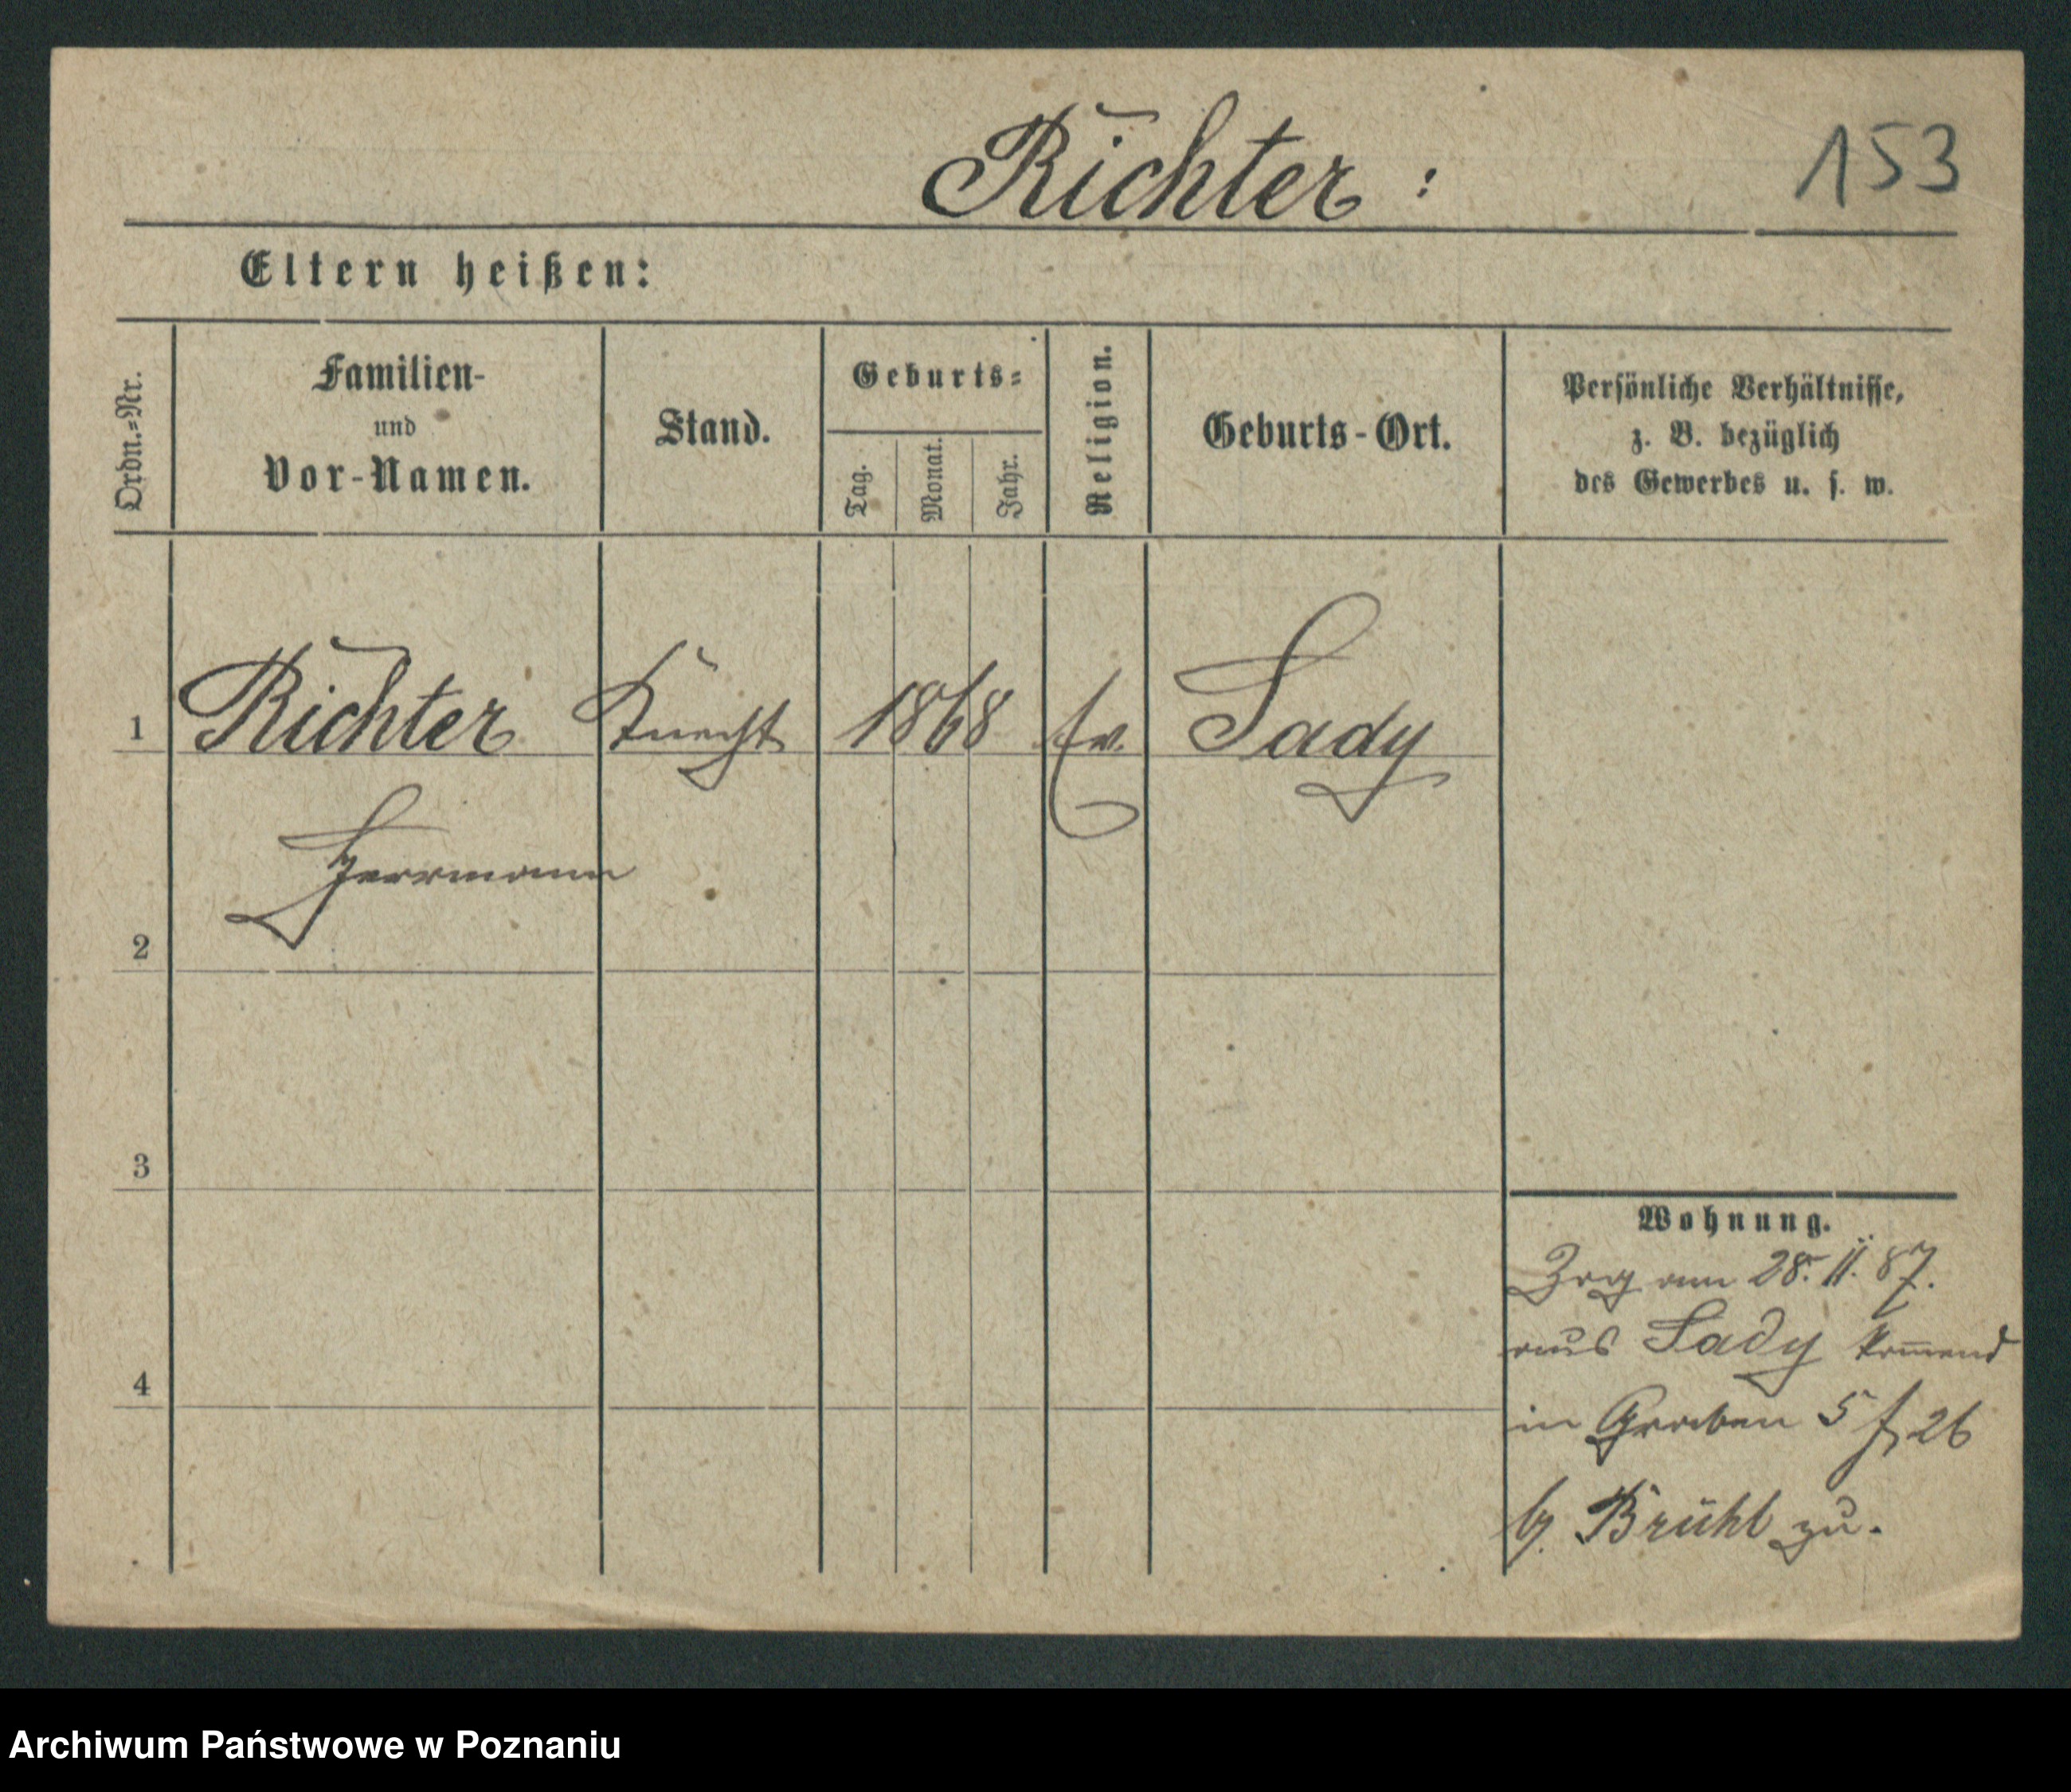 Richter :
153
Eltern heißen:
Ordn.=Nr.
Familien-
und
Vor-Namen.
Stand.
Geburts=
Tag.
Monat.
Jahr.
Religion.
Geburts-Ort.
Persönliche Verhältnisse,
z. B. bezüglich
des Gewerbes u. s. w.
1
Richter
Knecht
1868
Ev.
Sady
Herrmann
2
3
4
Wohnung.
Zog am 28. 11. 87.
aus Sady kom̅end
in Graben 5 f, 26
b/. Brühl zu.
Archiwum Państwowe w Poznaniu